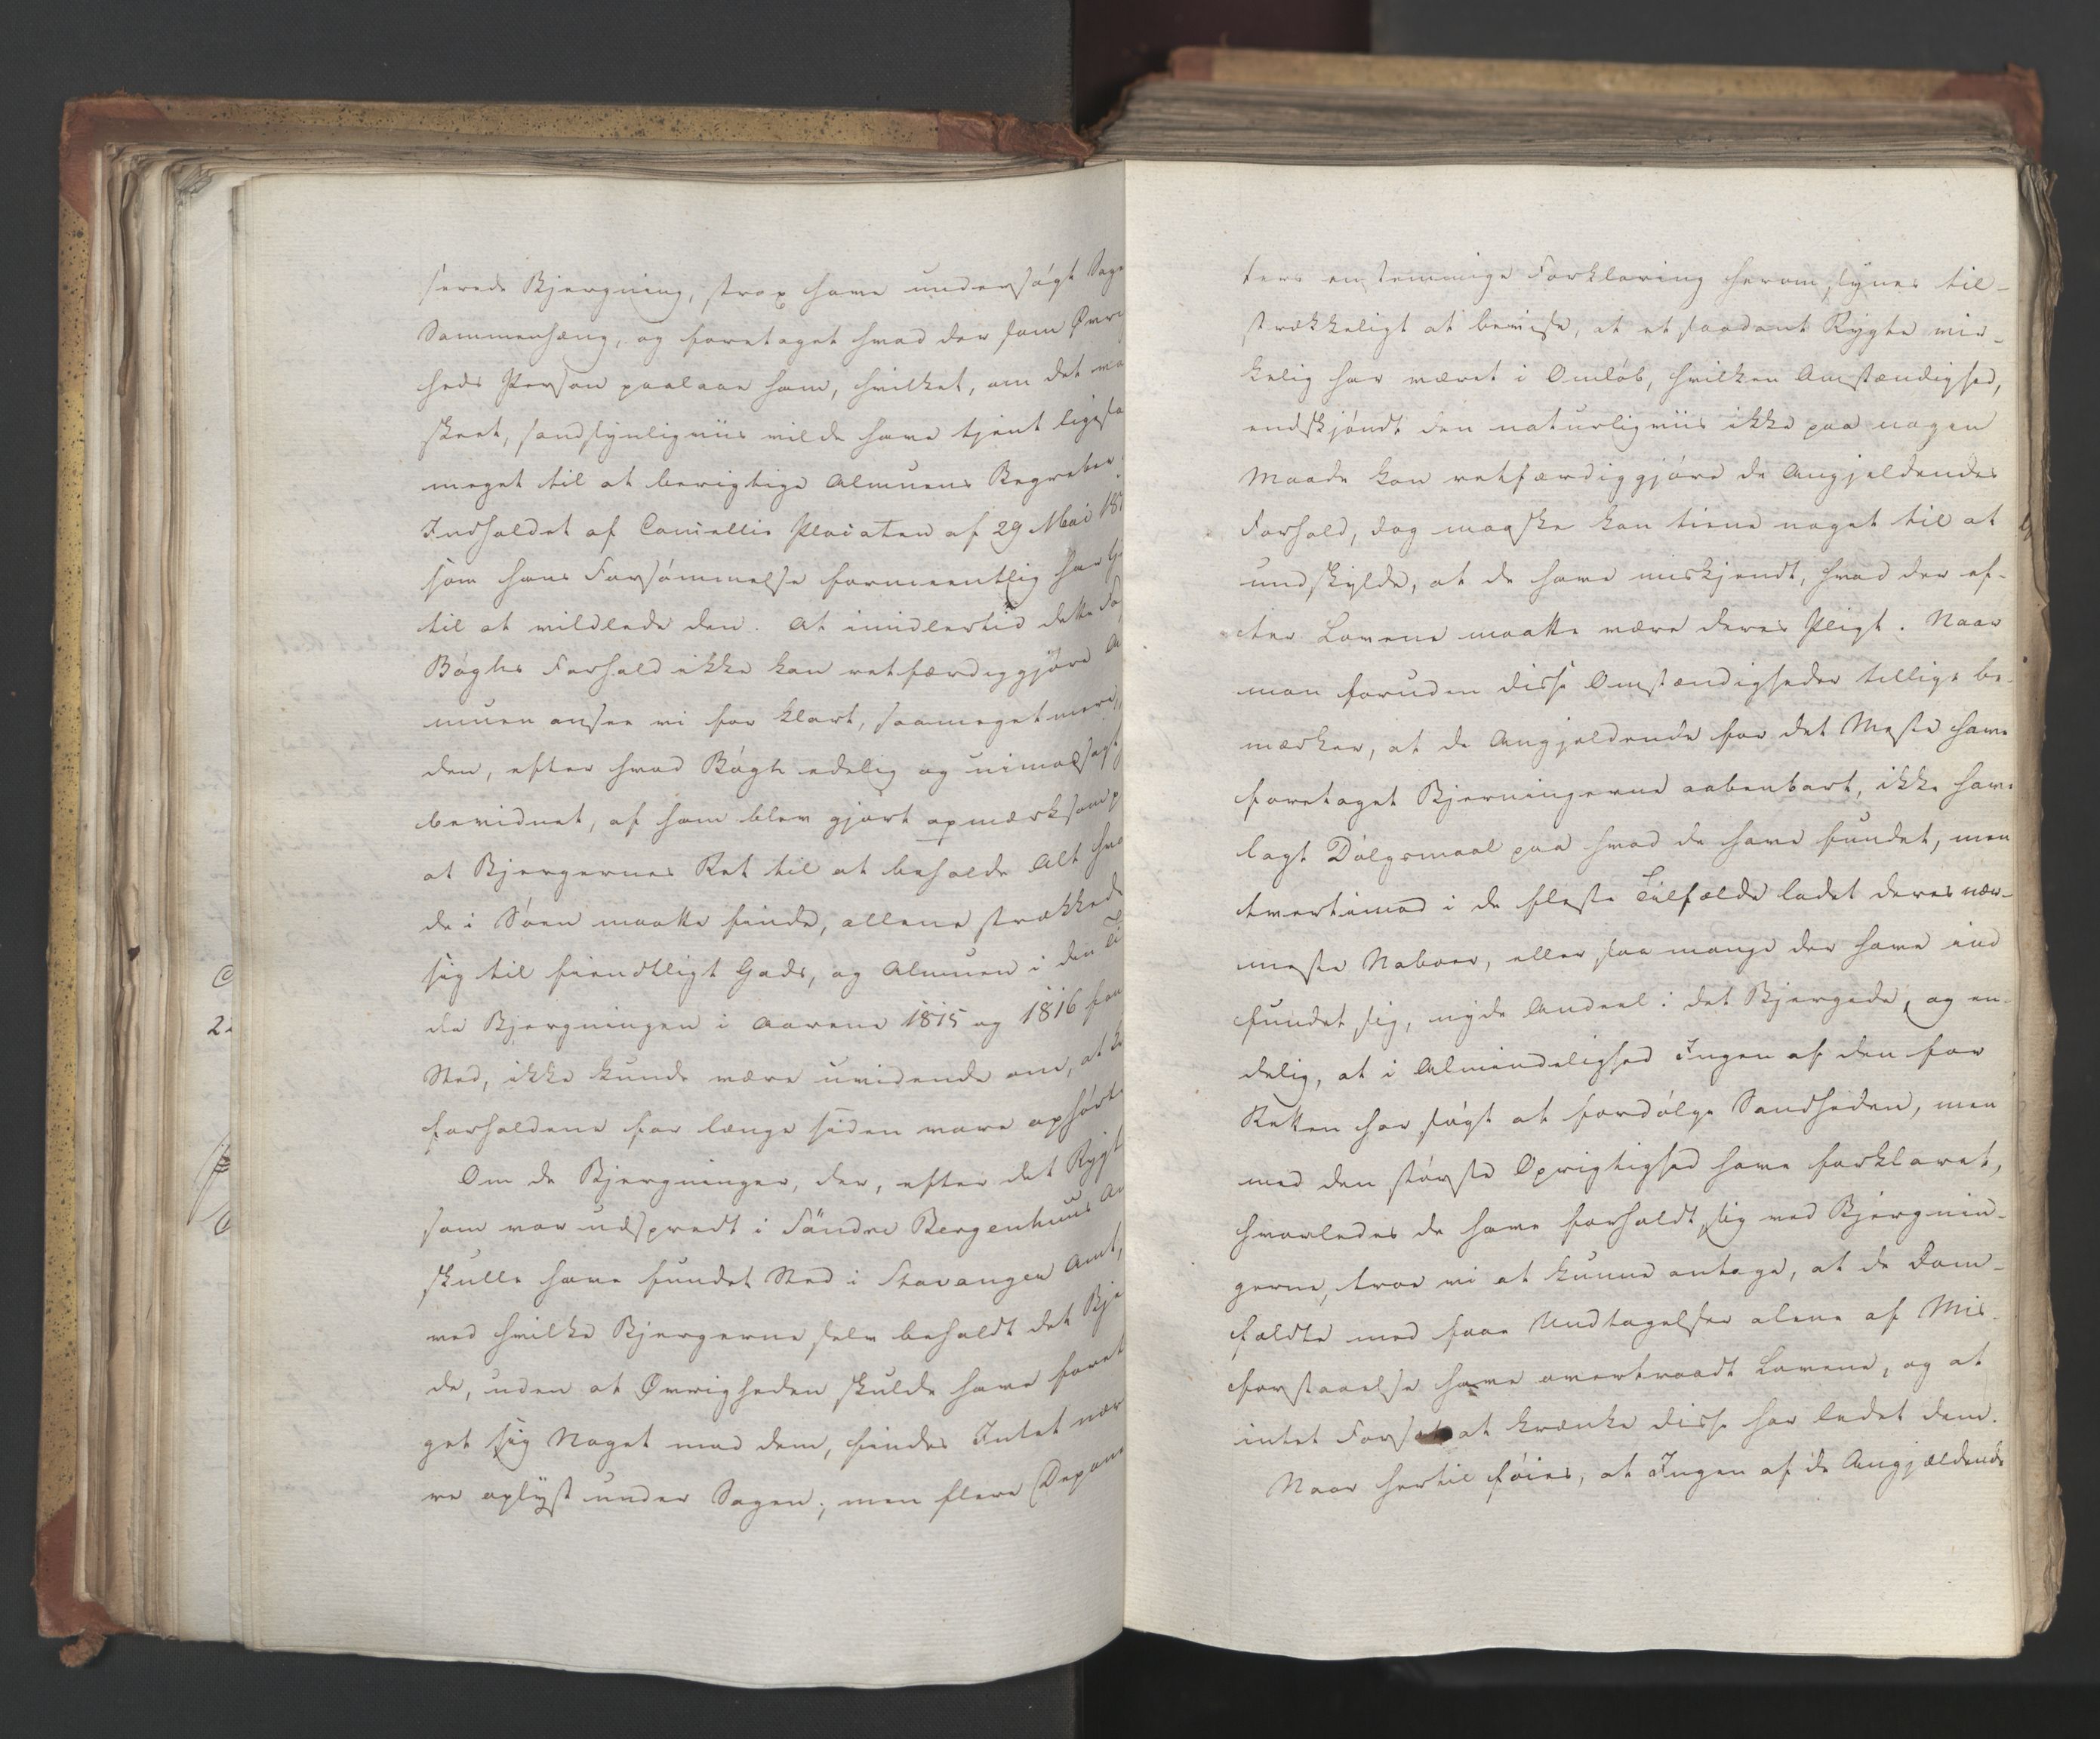 serede Bjergning, strax have undersøgt Sage
Sammenhæng, og foretaget hvad der som Øvri
heds Person paalaae ham, hvilket, om det va
skeet, sandsynligviis vilde have tjent ligesa
meget til at berigtige Almuens Begreber
Indholdet af Cancellie Placaten af 29 Mai 18
som hans Forsømmelse formeentlig har
til at vildlede den. At imidlertid dette
Bøghs Forhold ikke kan retfærdiggjøre A
muen ansee vi for klart, saameget mere,
den, efter hvad Bøgh edelig og uimodsagt
bevidnet, af ham blev gjort opmærksom p
at Bjergernes Ret til at beholde Alt hva
de i Søen maatte finde, allene strækked
sig til fiendtligt Gods, og Almuen i den Ti
da Bjergningen i Aarene 1815 og 1816 fan
Sted, ikke kunde være uvidende om, at K
forholdene for længe siden vare ophørte
Om de Bjergninger, der, efter det Rygt
som var udspredt i Söndre Bergenhuus Am
skulle have fundet Sted i Stavanger Amt,
ved hvilke Bjergerne selv beholdt det Bje
de, uden at Øvrigheden skulde have foret
get sig Noget mod dem, findes Intet nær
re oplyst under Sagen; men flere Depone
ters enstemmige Forklaring herom synes til-
strækkeligt at bevise, at et saadant Rygte vir-
kelig har været i Omløb, hvilken Omstændighed,
endskjøndt den naturligviis ikke paa nogen
Maade kan retfærdiggjøre de Angjeldendes
Forhold, dog maaske kan tiene noget til at
undskylde, at de have miskjendt, hvad der ef-
ter Lovene maatte være deres Pligt. Naar
man foruden disse Omstændigheder tillige be-
mærker, at de Angjeldende for det Meste have
foretaget Bjerningerne aabenbart, ikke have
lagt Dølgsmaal paa hvad de have fundet, men
tvertimod i de fleste Tilfælde ladet deres nær-
meste Naboer, eller saa mange der have ind
fundet sig, nyde Andeel i det Bjergede, og en-
delig, at i Almindelighed Ingen af dem for
Retten har søgt at fordølge Sandheden, men
med den største Oprigtighed have forklaret,
hvorledes de have forholdt sig ved Bjergnin-
gerne, troe vi at kunne antage, at de Dom-
fældte med faae Undtagelser alene af Mis-
forstaaelse have overtraadt Lovene, og at
intet Forsæt at krænke disse har ledet dem.
Naar hertil føies, at Ingen af de Angjældende